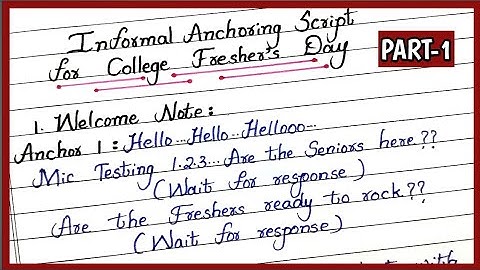 Informal Anchoring Script
for College Fresher's Day
PART-1
1. Welcome Note:
Anchor 1: Hello...Hello...Hellooo...
Mic Testing 1.2.3... Are the Seniors here??
(Wait for response)
Are the Freshers ready to rock??
(Wait for response)
with